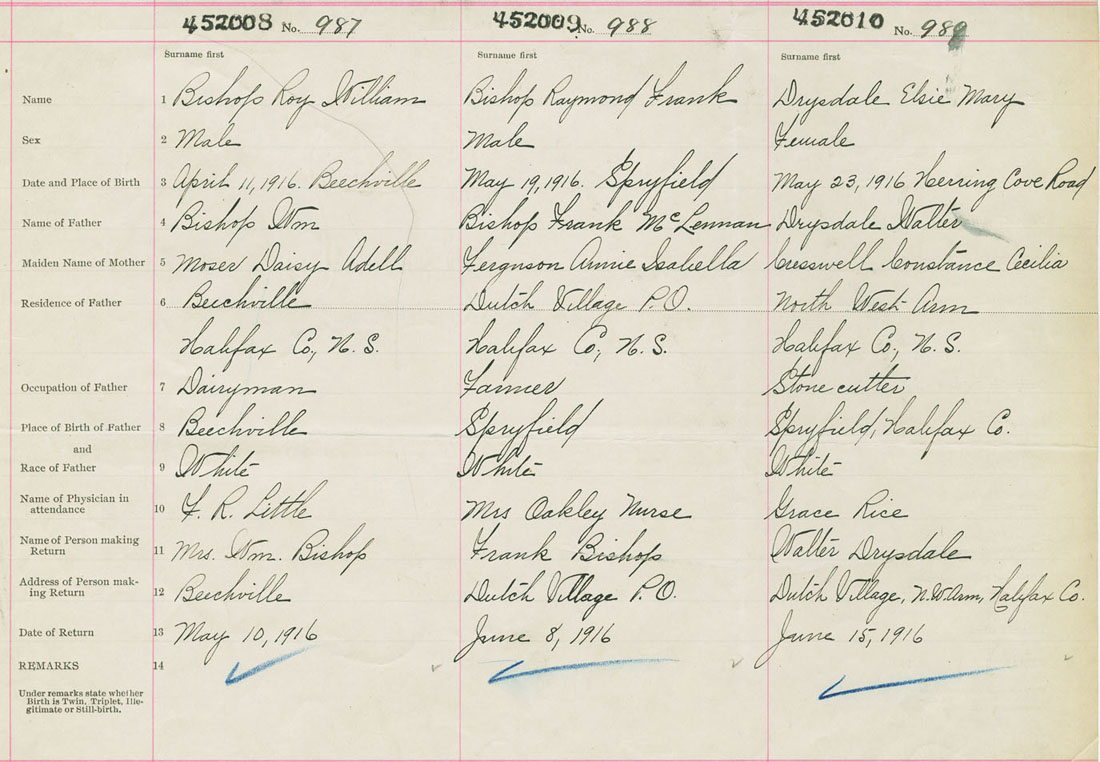 452008 No. 987 452009 No. 988 452010 No. 989
Surname first Surname first Surname first
Name 1 Bishop Roy William Bishop Raymond Frank Drysdale Elsie Mary
Sex 2 Male Male Female
Date and Place of Birth 3 April 11, 1916. Beechville May 19, 1916. Spryfield May 23, 1916 Herring Cove Road
Name of Father 4 Bishop Wm Bishop Frank McLennan Drysdale Walter
Maiden Name of Mother 5 Moser Daisy Adell Ferguson Annie Isabella Cresswell Constance Cecilia
Residence of Father 6 Beechville Dutch Village P.O. North West Arm
Halifax Co., N.S. Halifax Co., N.S. Halifax Co., N.S.
Occupation of Father 7 Dairyman Farmer Stone cutter
Place of Birth of Father 8 Beechville Spryfield Spryfield, Halifax Co.
and
Race of Father 9 White White White
Name of Physician in
attendance 10 F. R. Little Mrs Oakley Nurse Grace Rice
Name of Person making
Return 11 Mrs. Wm. Bishop Frank Bishop Walter Drysdale
Address of Person mak-
ing Return 12 Beechville Dutch Village P.O. Dutch Village, N.W. Arm, Halifax Co.
Date of Return 13 May 10, 1916 June 8, 1916 June 15, 1916
REMARKS 14
Under remarks state whether
Birth is Twin, Triplet, Ille-
gitimate or Still-birth.